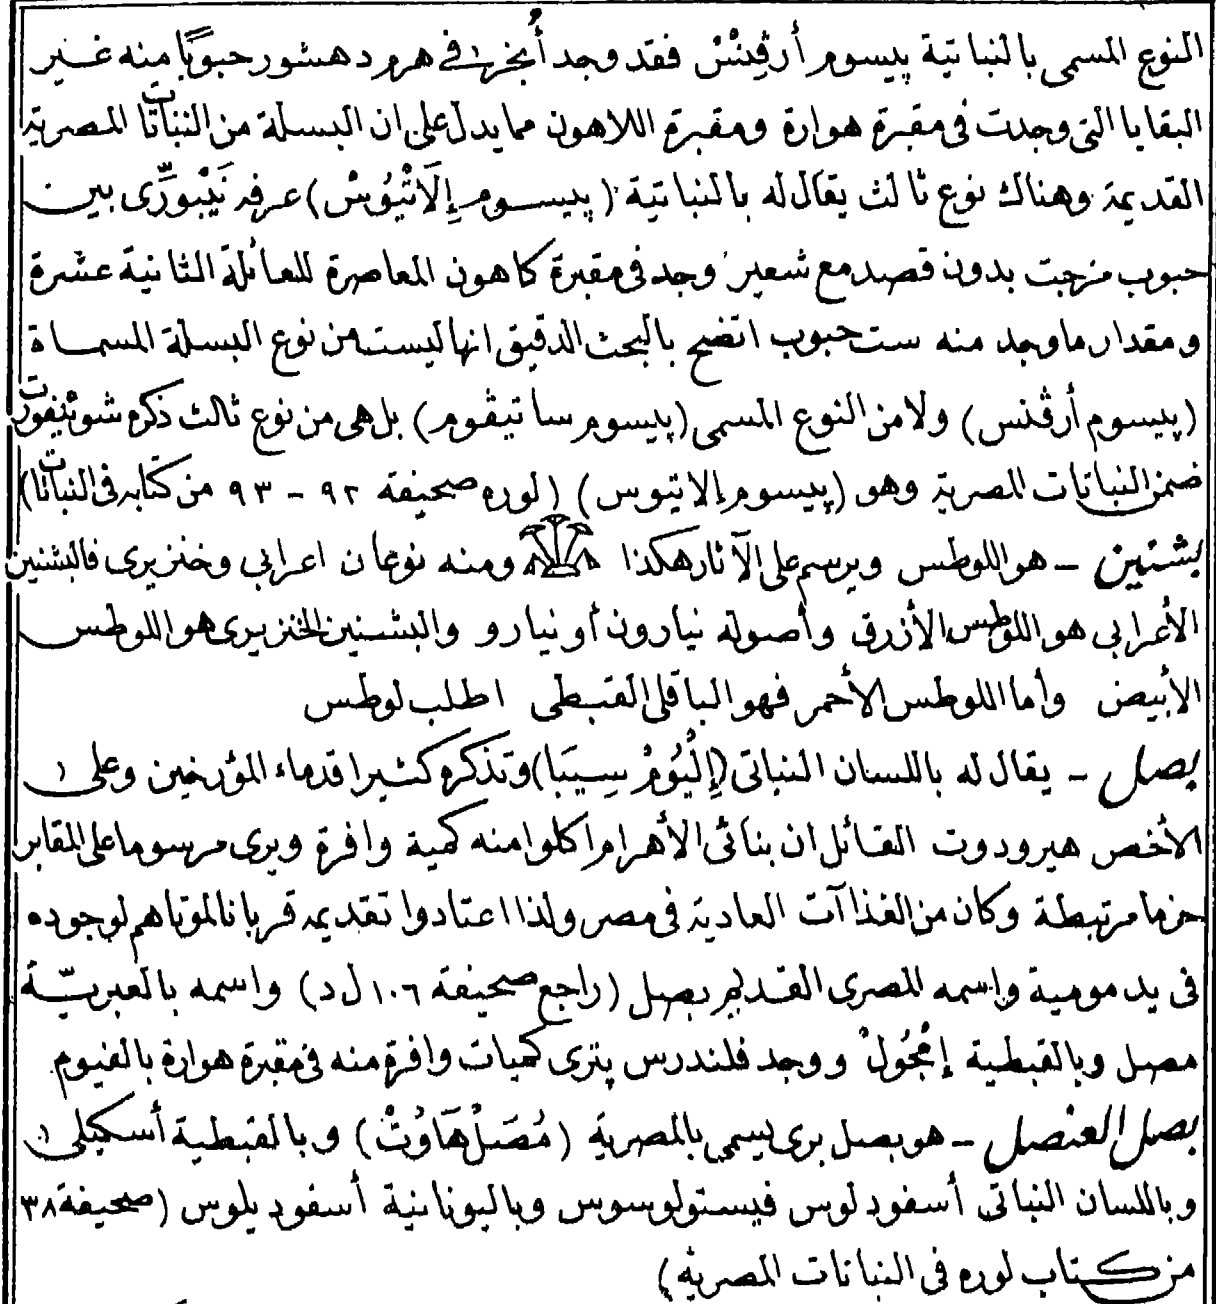 النوع المسمى بالنباتية پيسوم أرڤِنْسْ فقد وجد أُنجر في هرم دهشور حبوبًا منه غير
البقايا التى وجدت فى مقبرة هوارة ومقبرة اللاهون مما يدل على ان البسلة من النباتات المصرية
القديمة وهناك نوع ثالث يقال له بالنباتية (پيسوم إِلَاتْيُوسْ) عرفه نَيْبوِرِّى بين
حبوب مزجت بدون قصد مع شعير وجد فى مقبرة كاهون المعاصرة للعائلة الثانية عشرة
ومقدار ما وجد منه ست حبوب اتضح بالبحث الدقيق انها ليست من نوع البسلة المسماة
(پيسوم أرڤنس) ولا من النوع المسمى (پيسوم ساتيڤوم) بل هى من نوع ثالث ذكره شوينفورت
ضمن النباتات المصرية وهو (پيسوم إلاتيوس) (لوره صحيفة ٩٢ - ٩٣ من كتابه فى النباتات)
بشنين - هو اللوطس ويرسم على الآثار هكذا ومنه نوعان اعرابى وخنزيرى فالبشنين
الأعرابى هو اللوطس الأزرق وأصوله نيارون أو نيارو والبشنين الخنزيرى هو اللوطس
الأبيض وأما اللوطس الأحمر فهو الباقلى القبطى اطلب لوطس
بصل - يقال له باللسان النباتى (إِلْيُومْ سِيبَا) وتذكره كثيرا قدماء المؤرخين وعلى
الأخص هيرودوت القائل ان بنائى الأهرام اكلوا منه كمية وافرة ويرى مرسوما على المقابر
حزما مرتبطة وكان من الغذاآت العادية فى مصر ولذا اعتادوا تقديمه قربانا لموتاهم لوجوده
فى يد مومية واسمه المصرى القديم بصل (راجع صحيفة ١٠٦ ل د) واسمه بالعبريّة
مصل وبالقبطية إمْجُولْ ووجد فلندرس پترى كميات وافرة منه فى مقبرة هوارة بالفيوم
بصل العنْصل - هو بصل برى يسمى بالمصرية (مُصَلْ هَاوُتْ) وبالقبطية أسكيلى
وباللسان النباتى أسفودلوس فيستولوسوس وباليونانية أسفوديلوس (صحيفة ٣٨
من كتاب لوره فى النباتات المصرية)